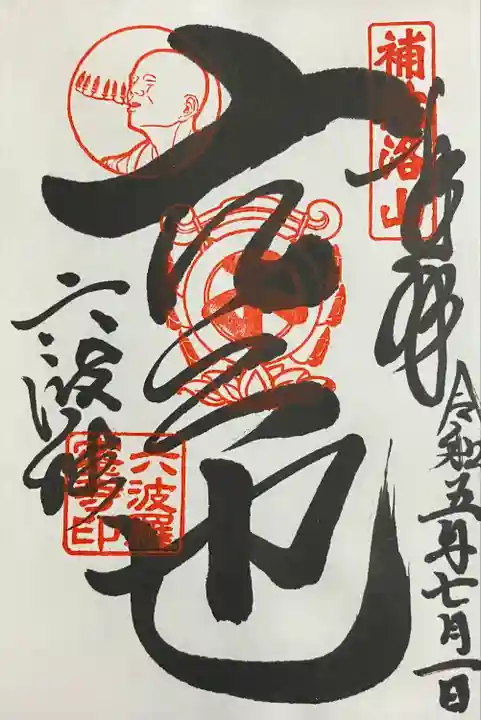 奉拝
令和五年七月一日
補陀洛山
空也
六波羅
六波羅
蜜寺印